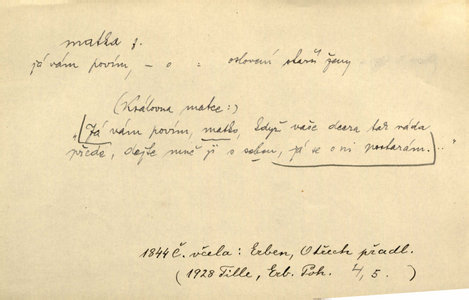 matka f.
já vám povím, – o = oslovení starší ženy
(Královna matce:)
„Já vám povím, matko, když vaše dcera tak ráda
přede, dejte mně ji s sebou, já se o ni postarám..."
1844 Č. včela: Erben, O třech přadl.
(1928 Tille, Erb. Poh. 4, 5. )